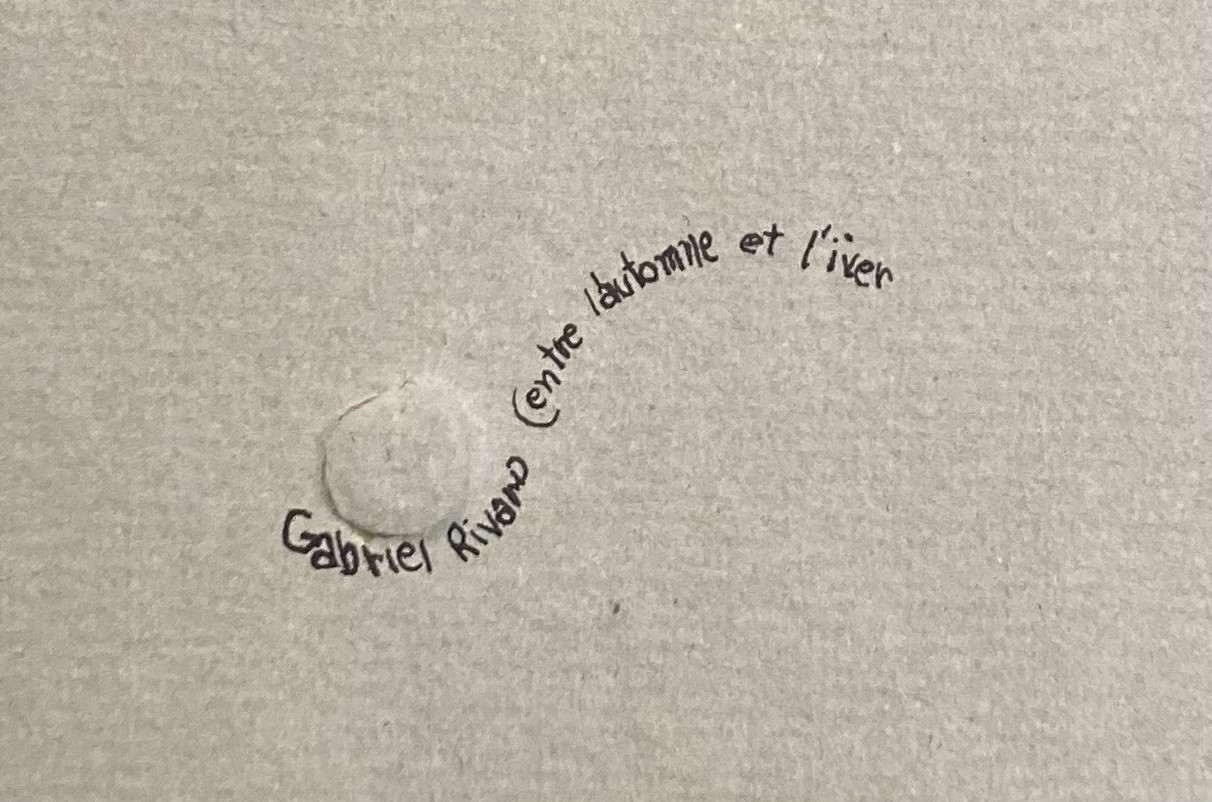 Gabriel Rivard (entre l'automne et l'iver